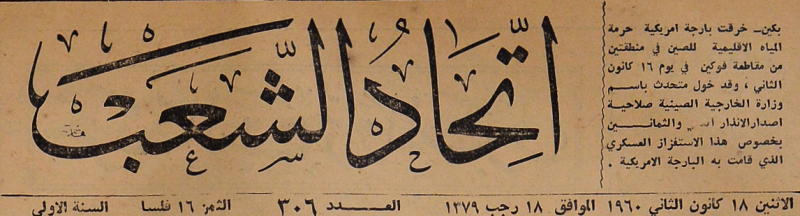 اتّحَادُ الشَّعب
بكين ـ خرقت بارجة امريكية حرمة
المياه الاقليمية للصين في منطقتين
من مقاطعة فوكين في يوم ١٦ كانون
الثاني ، وقد خول متحدث باسم
وزارة الخارجية الصينية صلاحية
اصدار الانذار والثمانين
بخصوص هذا الاستفزاز العسكري
الذي قامت به البارجة الامريكية .
الاثنين ١٨ كانون الثاني ١٩٦٠ الموافق ١٨ رجب ١٣٧٩ العـــدد ٣٠٦ الثمن ١٦ فلسا السنة الاولى